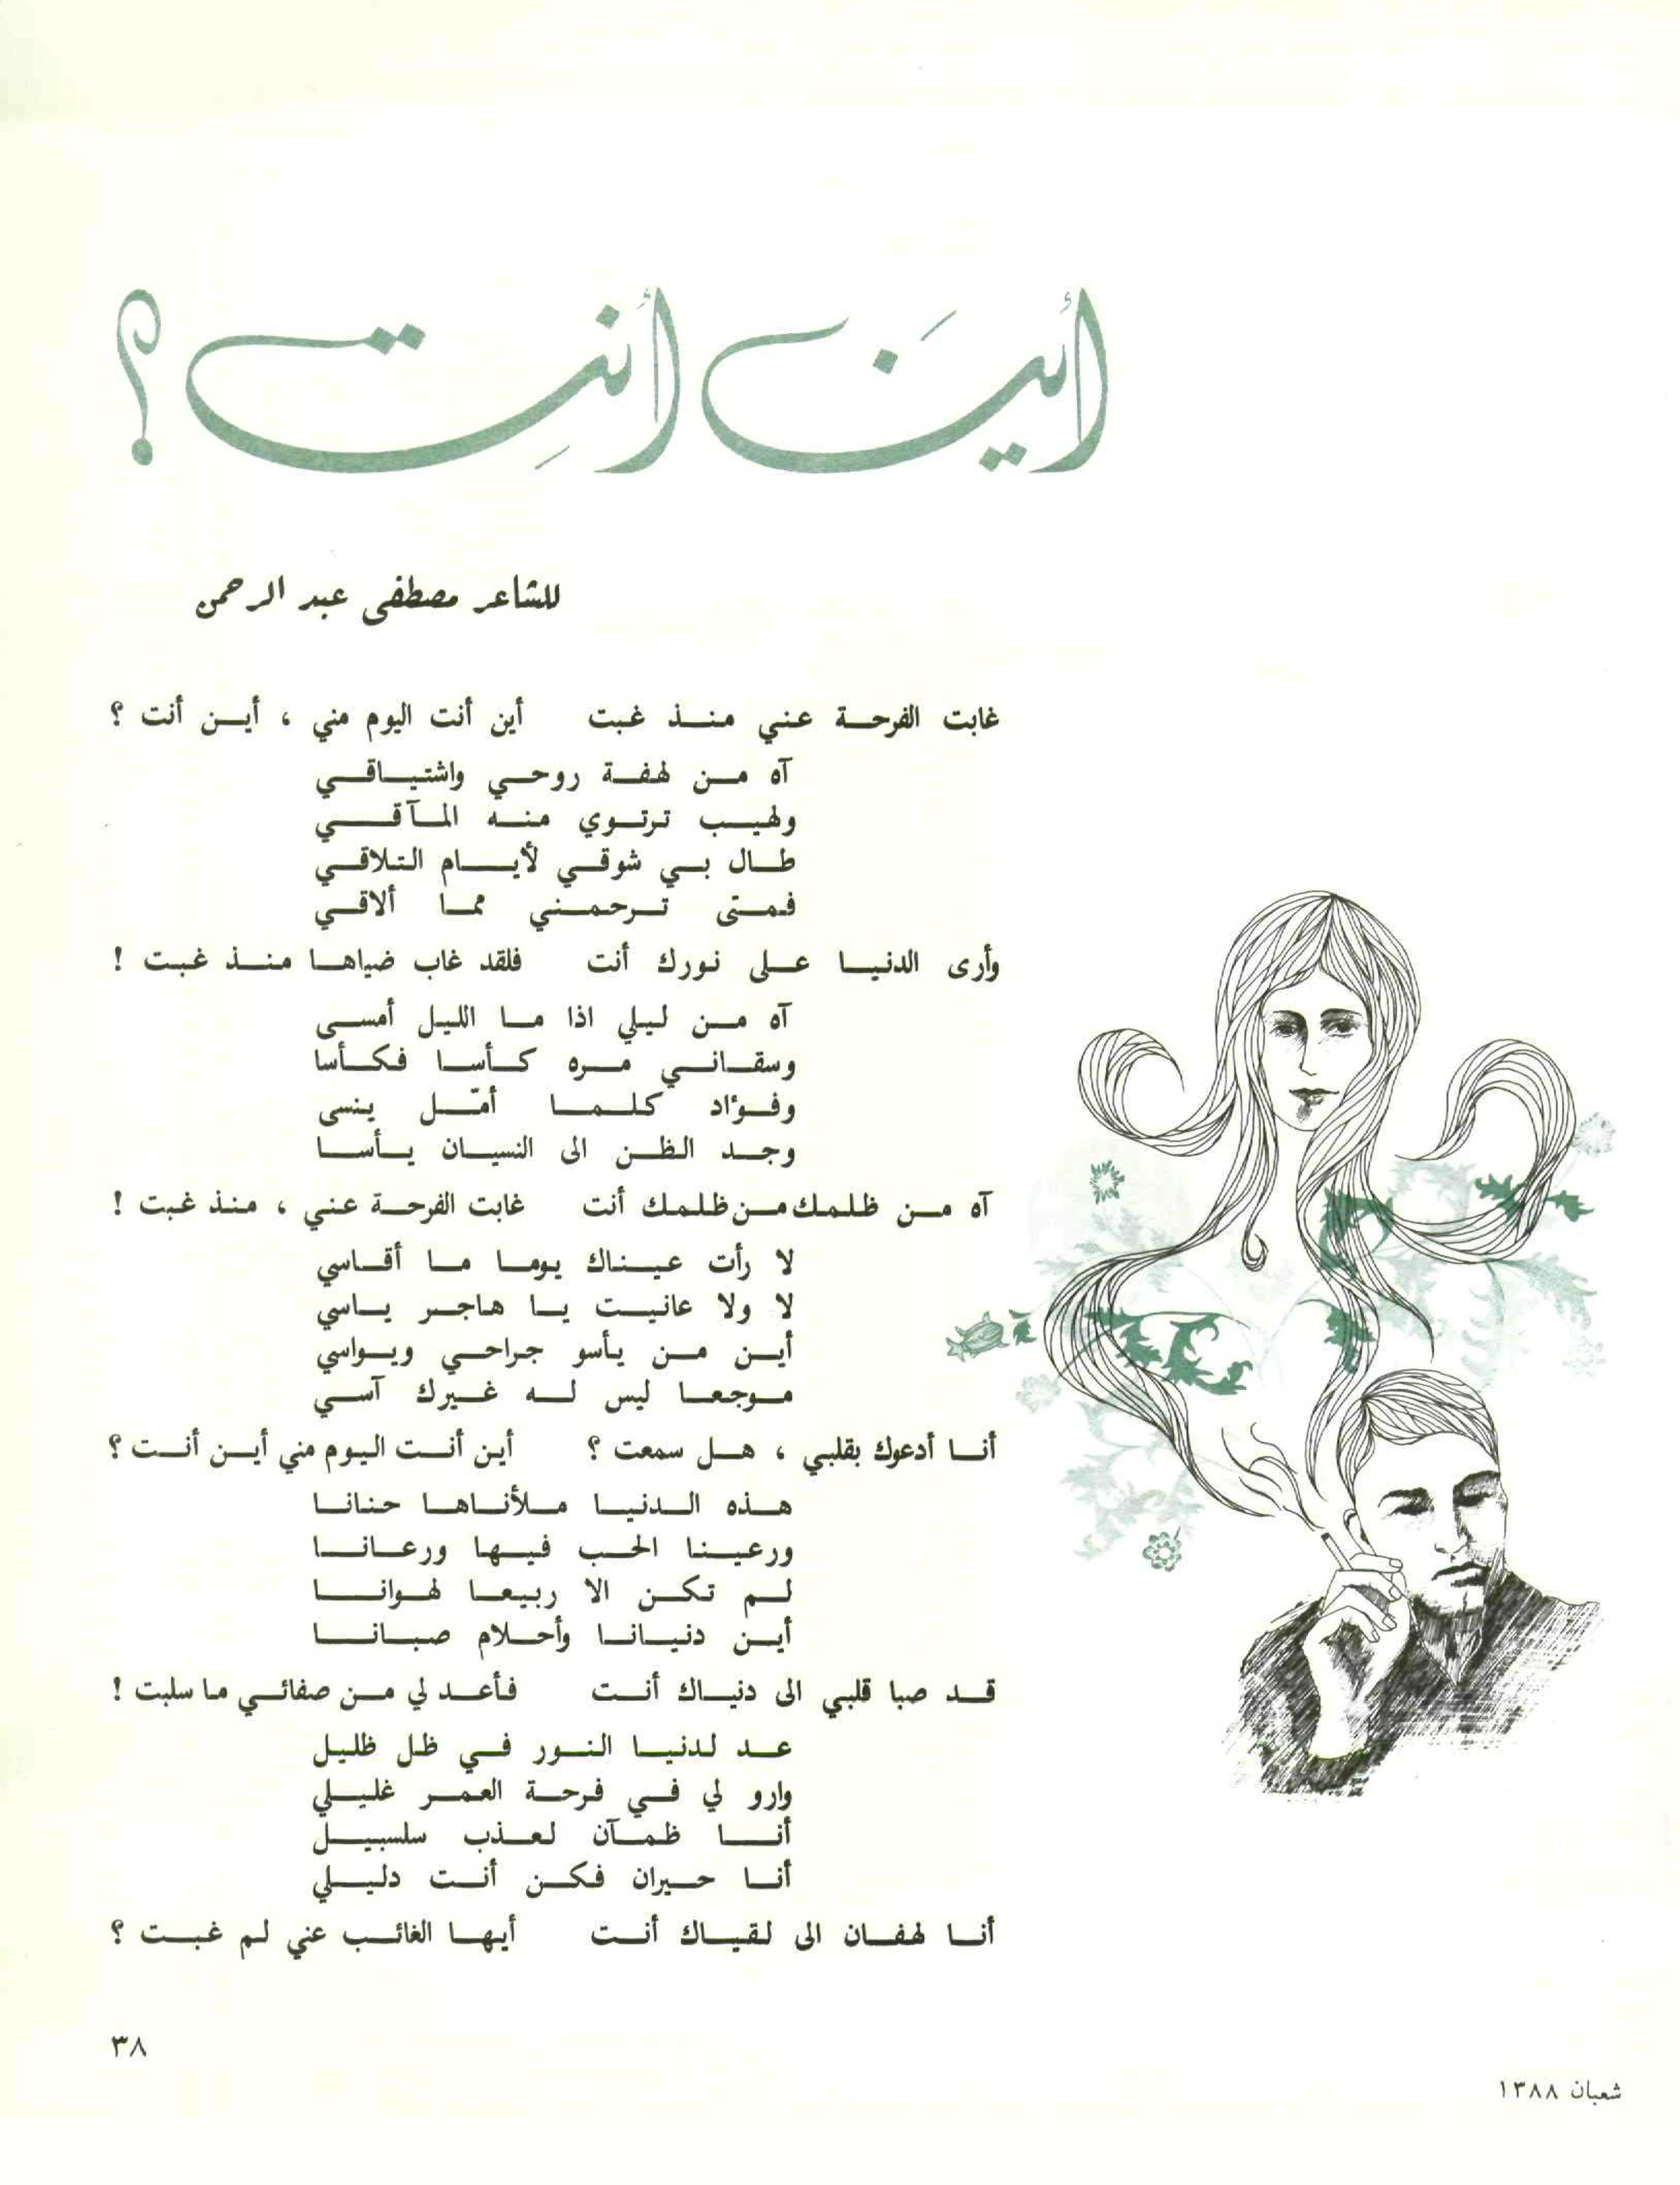 أينَ أنتِ ؟
للشاعر مصطفى عبد الرحمن
غابت الفرحة عني منذ غبت أين أنت اليوم مني ، أين أنت ؟
آه من لهفة روحي واشتياقي
ولهيب ترتوي منه المآقي
طال بي شوقي لأيام التلاقي
فمتى ترحمني مما ألاقي
وأرى الدنيا على نورك أنت فلقد غاب ضياها منذ غبت !
آه من ليلي اذا ما الليل أمسى
وسقاني مره كأسا فكأسا
وفؤاد كلما أمّل ينسى
وجد الظن الى النسيان يأسا
آه من ظلمك من ظلمك أنت غابت الفرحة عني ، منذ غبت !
لا رأت عيناك يوما ما أقاسي
لا ولا عانيت يا هاجر ياسي
أين من يأسو جراحي ويواسي
موجعا ليس له غيرك آسي
أنا أدعوك بقلبي ، هل سمعت ؟ أين أنت اليوم مني أين أنت ؟
هذه الدنيا ملأناها حنانا
ورعينا الحب فيها ورعانا
لم تكن الا ربيعا لهوانا
أين دنيانا وأحلام صبانا
قد صبا قلبي الى دنياك أنت فأعد لي من صفائي ما سلبت !
عد لدنيا النور في ظل ظليل
وارو لي في فرحة العمر غليلي
أنا ظمآن لعذب سلسبيل
أنا حيران فكن أنت دليلي
أنا لهفان الى لقياك أنت أيها الغائب عني لم غبت ؟
٣٨
شعبان ١٣٨٨